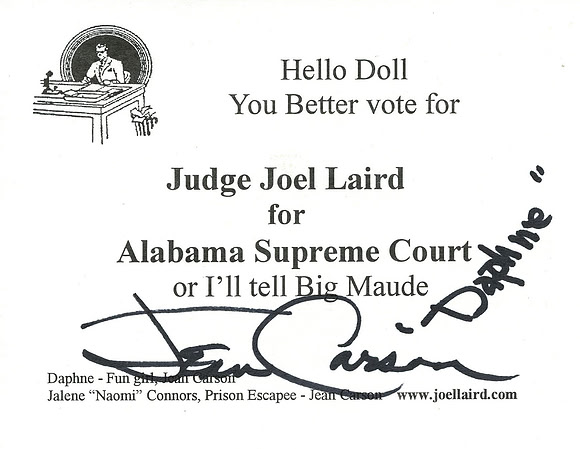 Hello Doll
You Better vote for
Judge Joel Laird
for
Alabama Supreme Court
or I'll tell Big Maude
"Daphne"
Jean Carson
Daphne - Fun girl, Jean Carson
Jalene “Naomi” Connors, Prison Escapee - Jean Carson www.joellaird.com